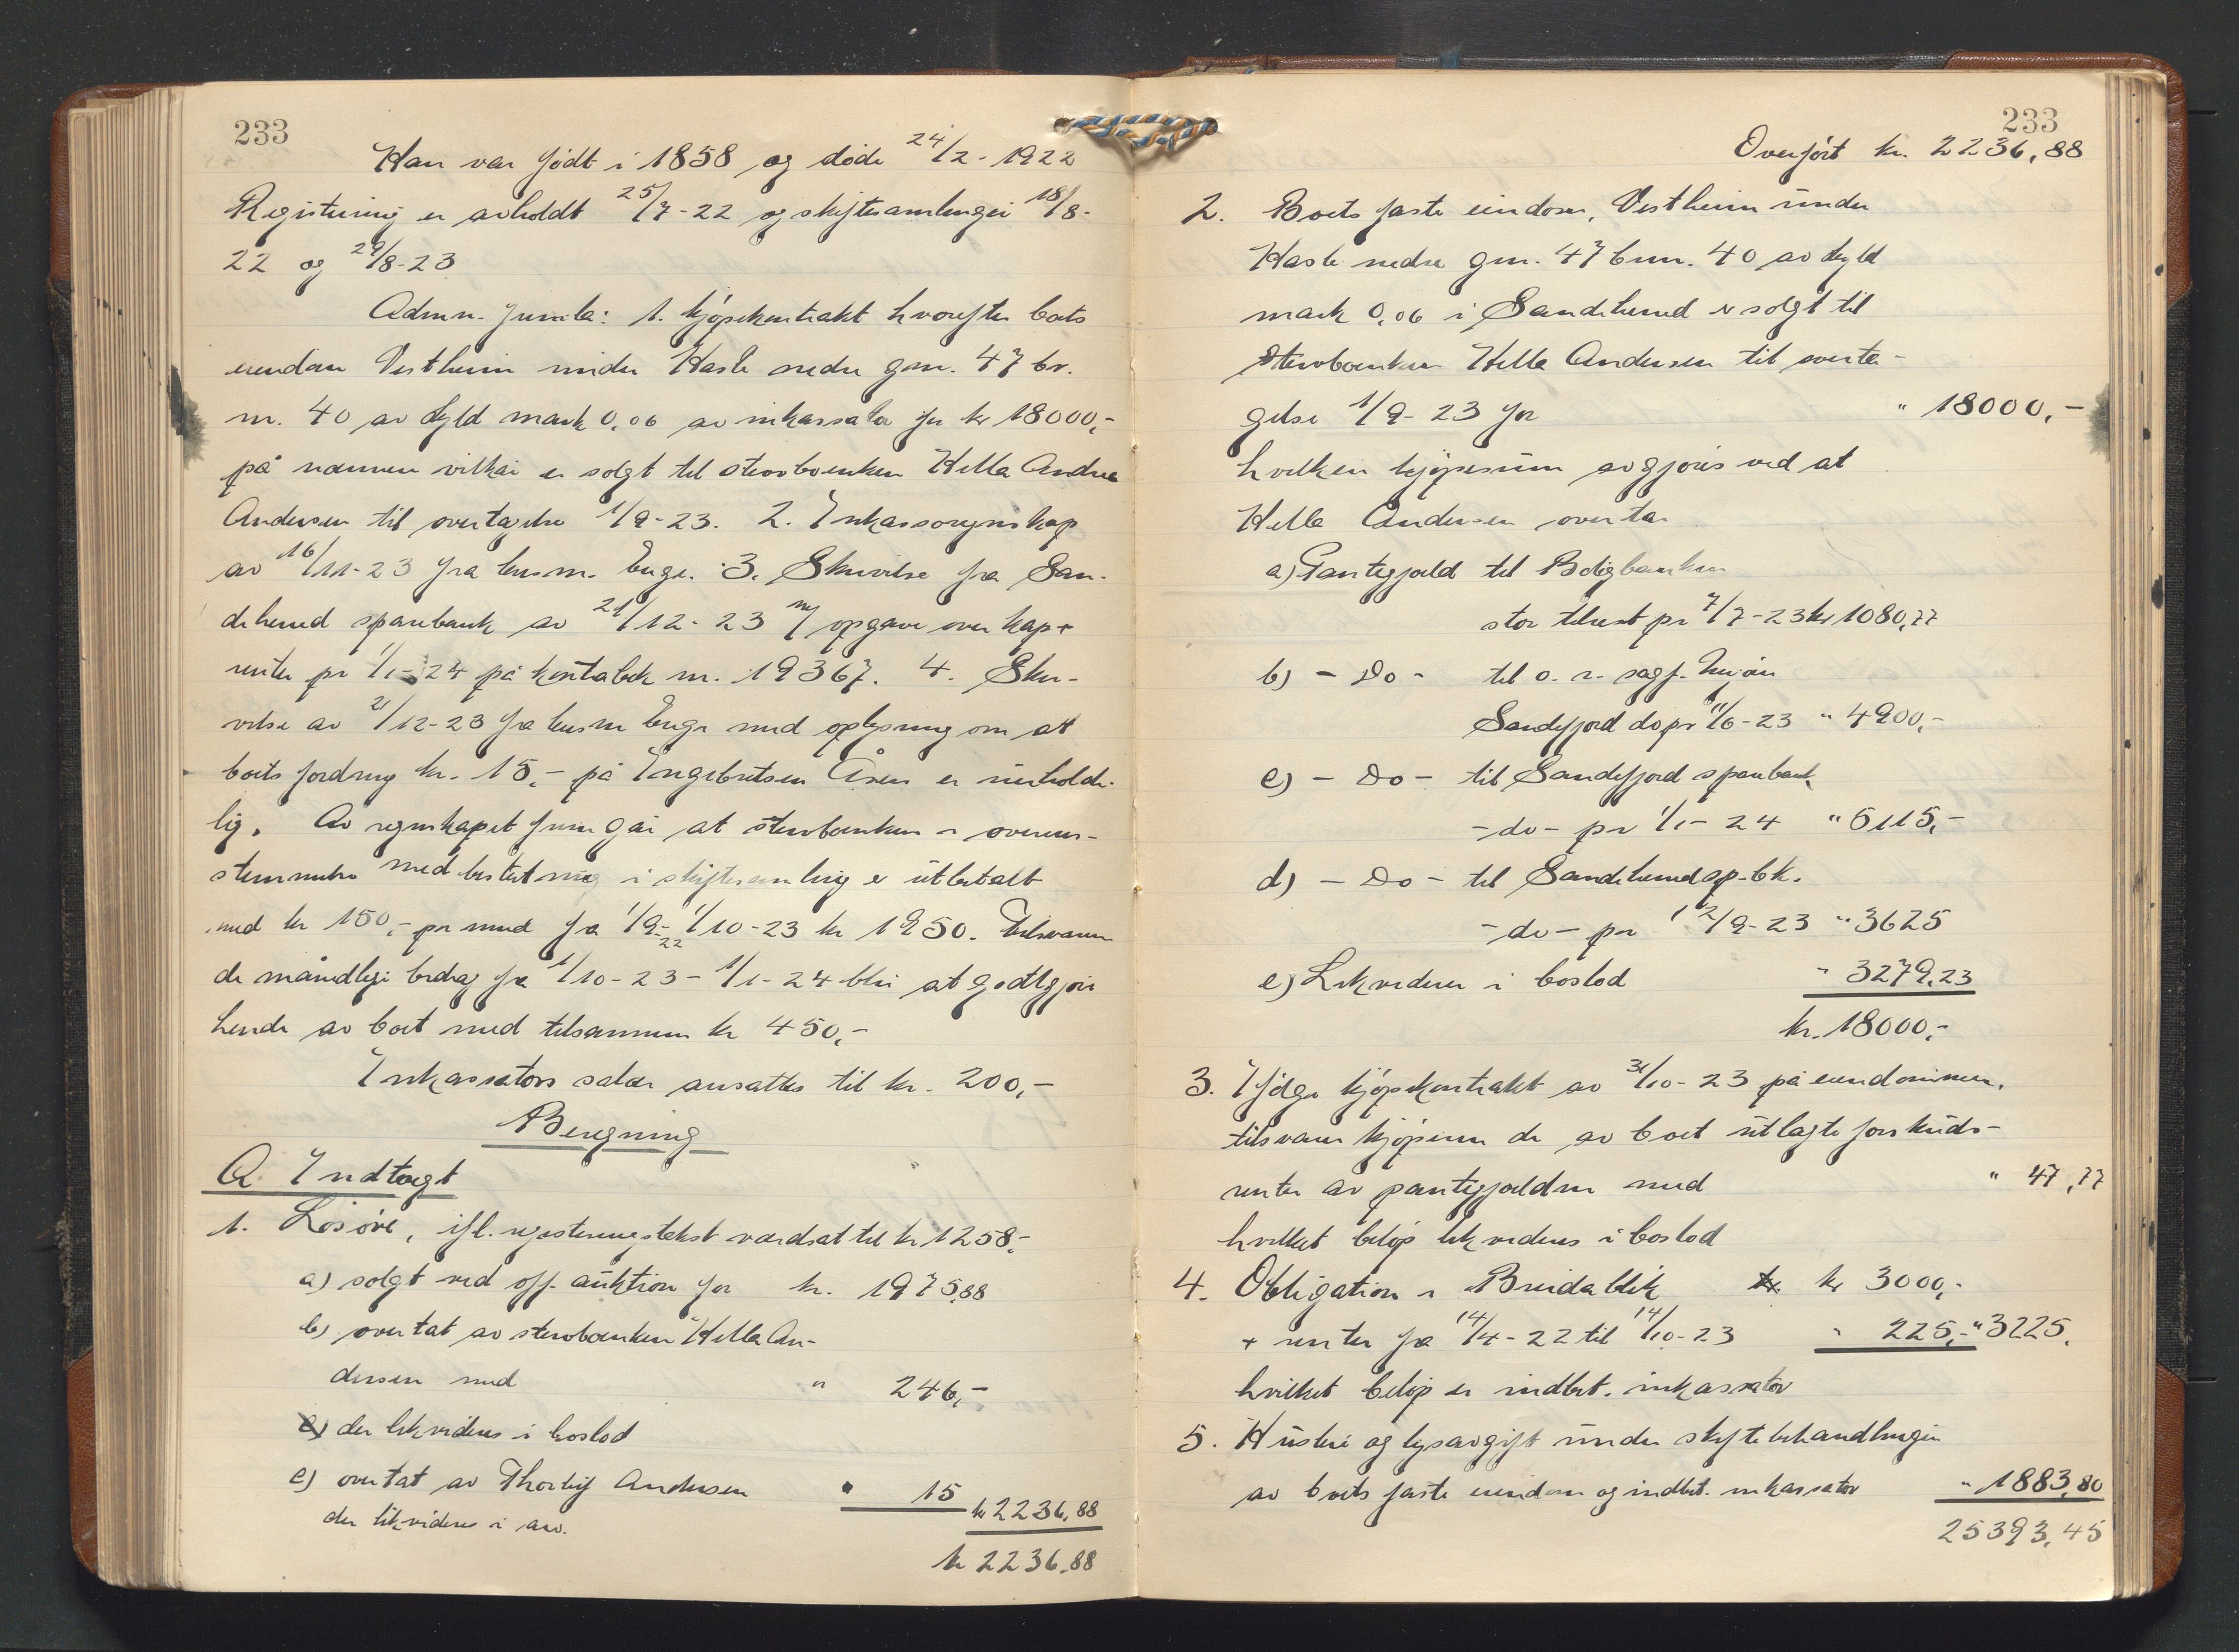 233
Han var født i 1858 og døde 24/2-1922
Registering er avholdt 25/7-22 og skiftesamlinger 18/8-
22 og 29/8-23
Adm. fremla: 1. kjøpekontrakt hvorefter boets
eiendom Vestheim under Hasle nedre gnr. 47 br.
nr. 40 av skyld mark 0,06 av inkassator for kr 18000,-
på nævnte vilkår er solgt til stervboenken Hella Andrea
Andersen til overtagelse 1/9-23. 2. Inkassoregnskap
av 16/11-23 fra lensm. Enge. 3. Skrivelse fra San-
deherred sparebank av 21/12-23 m/ opgave over kap +
renter pr 1/1-24 på kontobok nr. 19367. 4. Skri-
velse av 21/12-23 fra lensm Enge med oplysning om at
boets fordring kr. 15,- på Engebretsen Åsen er uerholde-
lig. Av regnskapet fremgår at stervboenken i overens-
stemmelse med beslutning i skiftesamling er utbetalt
med kr 150,- pr mnd fra 1/9-22 - 1/10-23 kr 1950. Tilsvaren-
de månedlige bidrag fra 1/10-23 - 1/1-24 blir at godtgjøre
hende av boet med tilsammen kr 450,-
Inkassators salær ansattes til kr. 200,-
Beregning
A Indtægt
1. Løsøre, ifl. registeringstakst værdsat til kr 1258,-
a) solgt ved off. auktion for kr. 1975,88
b) overtat av stervboenken Hella An-
dersen med " 246,-
der likvideres i boslod
c) overtat av Thorleif Andersen " 15
der likvideres i arv. kr 2236,88
kr 2236,88
233
Overført kr. 2236,88
2. Boets faste eiendom, Vestheim under
Hasle nedre gnr. 47 bnr. 40 av skyld
mark 0,06 i Sandeherred er solgt til
stervboenken Hella Andersen til overta-
gelse 1/9-23 for " 18000,-
hvilken kjøpesum avgjøres ved at
Hella Andersen overtar
a) Pantegjæld til Boligbanken
stor tilrest pr 7/7-23 kr 1080,77
b) - Do - til o. r. sagf.
Sandefjord do pr 11/6-23 " 4900,-
c) - Do - til Sandefjord sparebank
- do - pr 1/1-24 " 5115,-
d) - Do - til Sandeherred sp.bk.
- do - pr 12/9-23 " 3625
e) Likvideres i boslod " 3279,23
kr. 18000,-
3. Ifølge kjøpekontrakt av 31/10-23 på eiendommen,
tilsvarer kjøperen de av boet utlagte forskuds-
renter av pantegjælden med " 47,77
hvilket beløp likvideres i boslod
4. Obligation i Breidablik kr 3000,-
+ renter fra 14/4-22 til 14/10-23 " 225,- " 3225,
hvilket beløp er indbet. inkassator
5. Husleie og lysavgift under skiftebehandlingen
av boets faste eiendom og indbet. inkassator " 1883,80
25393,45